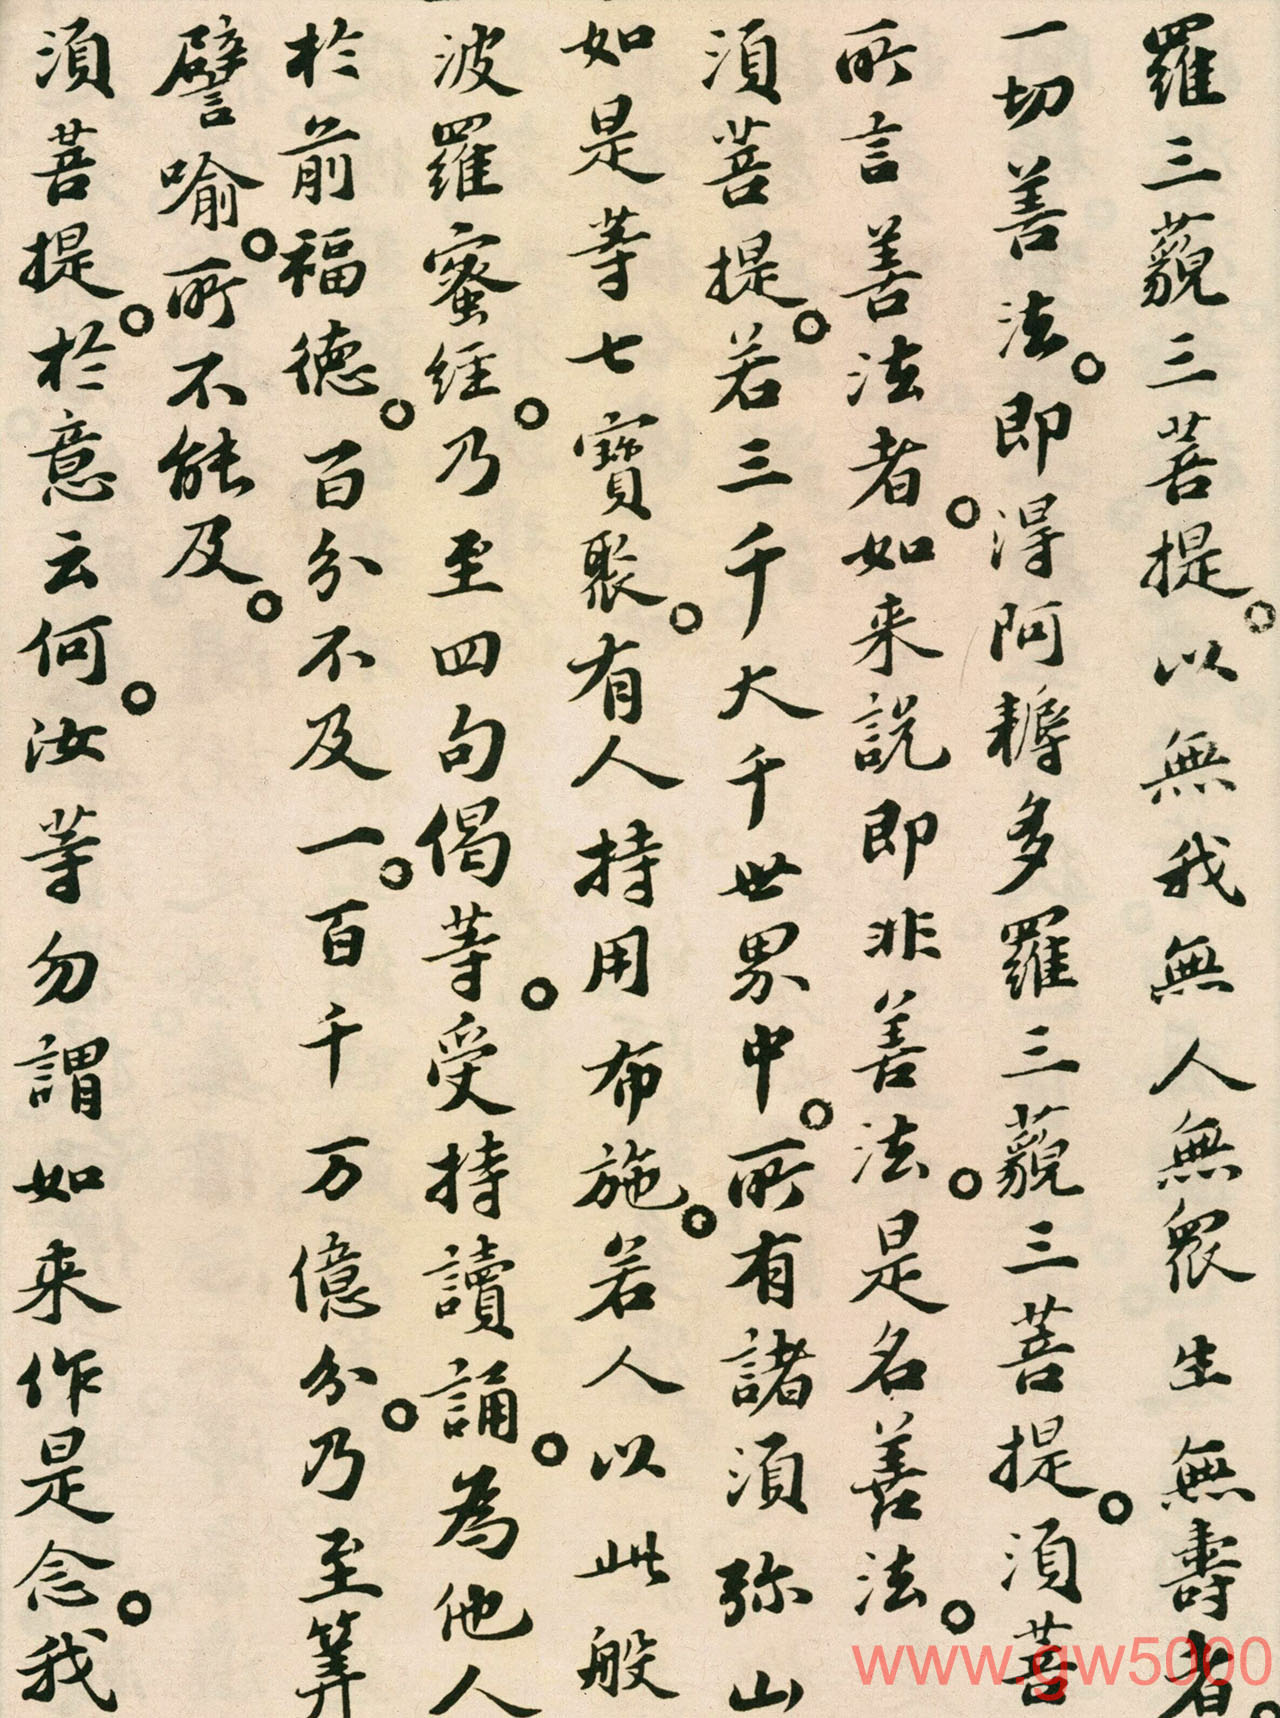 羅三藐三菩提。以無我無人無衆生無壽者。
一切善法。即得阿耨多羅三藐三菩提。須菩
所言善法者。如来説即非善法。是名善法。
須菩提。若三千大千世界中。所有諸須弥山
如是等七寶聚。有人持用布施。若人以此般
波羅蜜經。乃至四句偈等。受持讀誦。為他人
於前福德。百分不及一。百千万億分。乃至筭
譬喻。所不能及。
須菩提。於意云何。汝等勿謂如来作是念。我
www.gw5000